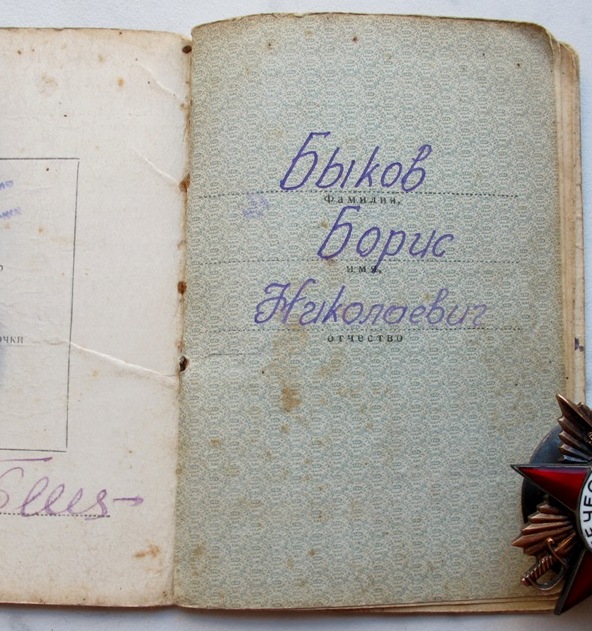 Быков
Фамилия,
Борис
имя,
Николаевич
отчество